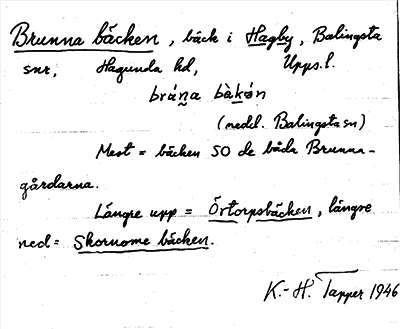 Brunna bäcken, bäck i Hagby, Balingsta
snr, Hagunda hd, Upps. l.
bráṉa bàkǝn
(medd. Balingsta sn)
Mest = bäcken SO de båda Brunna-
gårdarna.
Längre upp = Örtorpsbäcken, längre
ned = Skornome bäcken.
K.-H. Tapper 1946